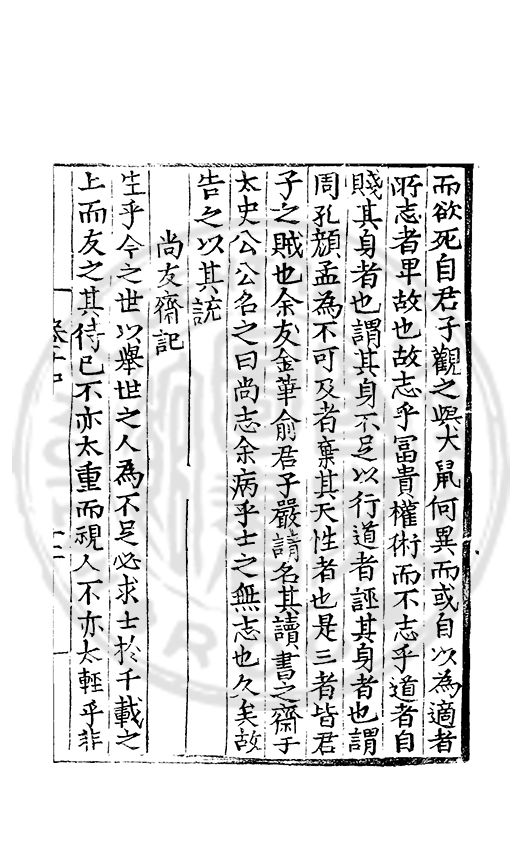 而欲死自君子觀之與犬鼠何異而或自以為適者
所志者卑故也故志乎冨貴權術而不志乎道者自
賤其身者也謂其身不足以行道者誣其身者也謂
周孔顏孟為不可及者棄其天性者也是三者皆君
子之賊也余友金華俞君子嚴請名其讀書之齋于
太史公公名之曰尚志余病乎士之無志也久矣故
告之以其說
尚友齋記
生乎今之世以舉世之人為不足必求士於千載之
上而友之其待已不亦太重而視人不亦太輕乎非